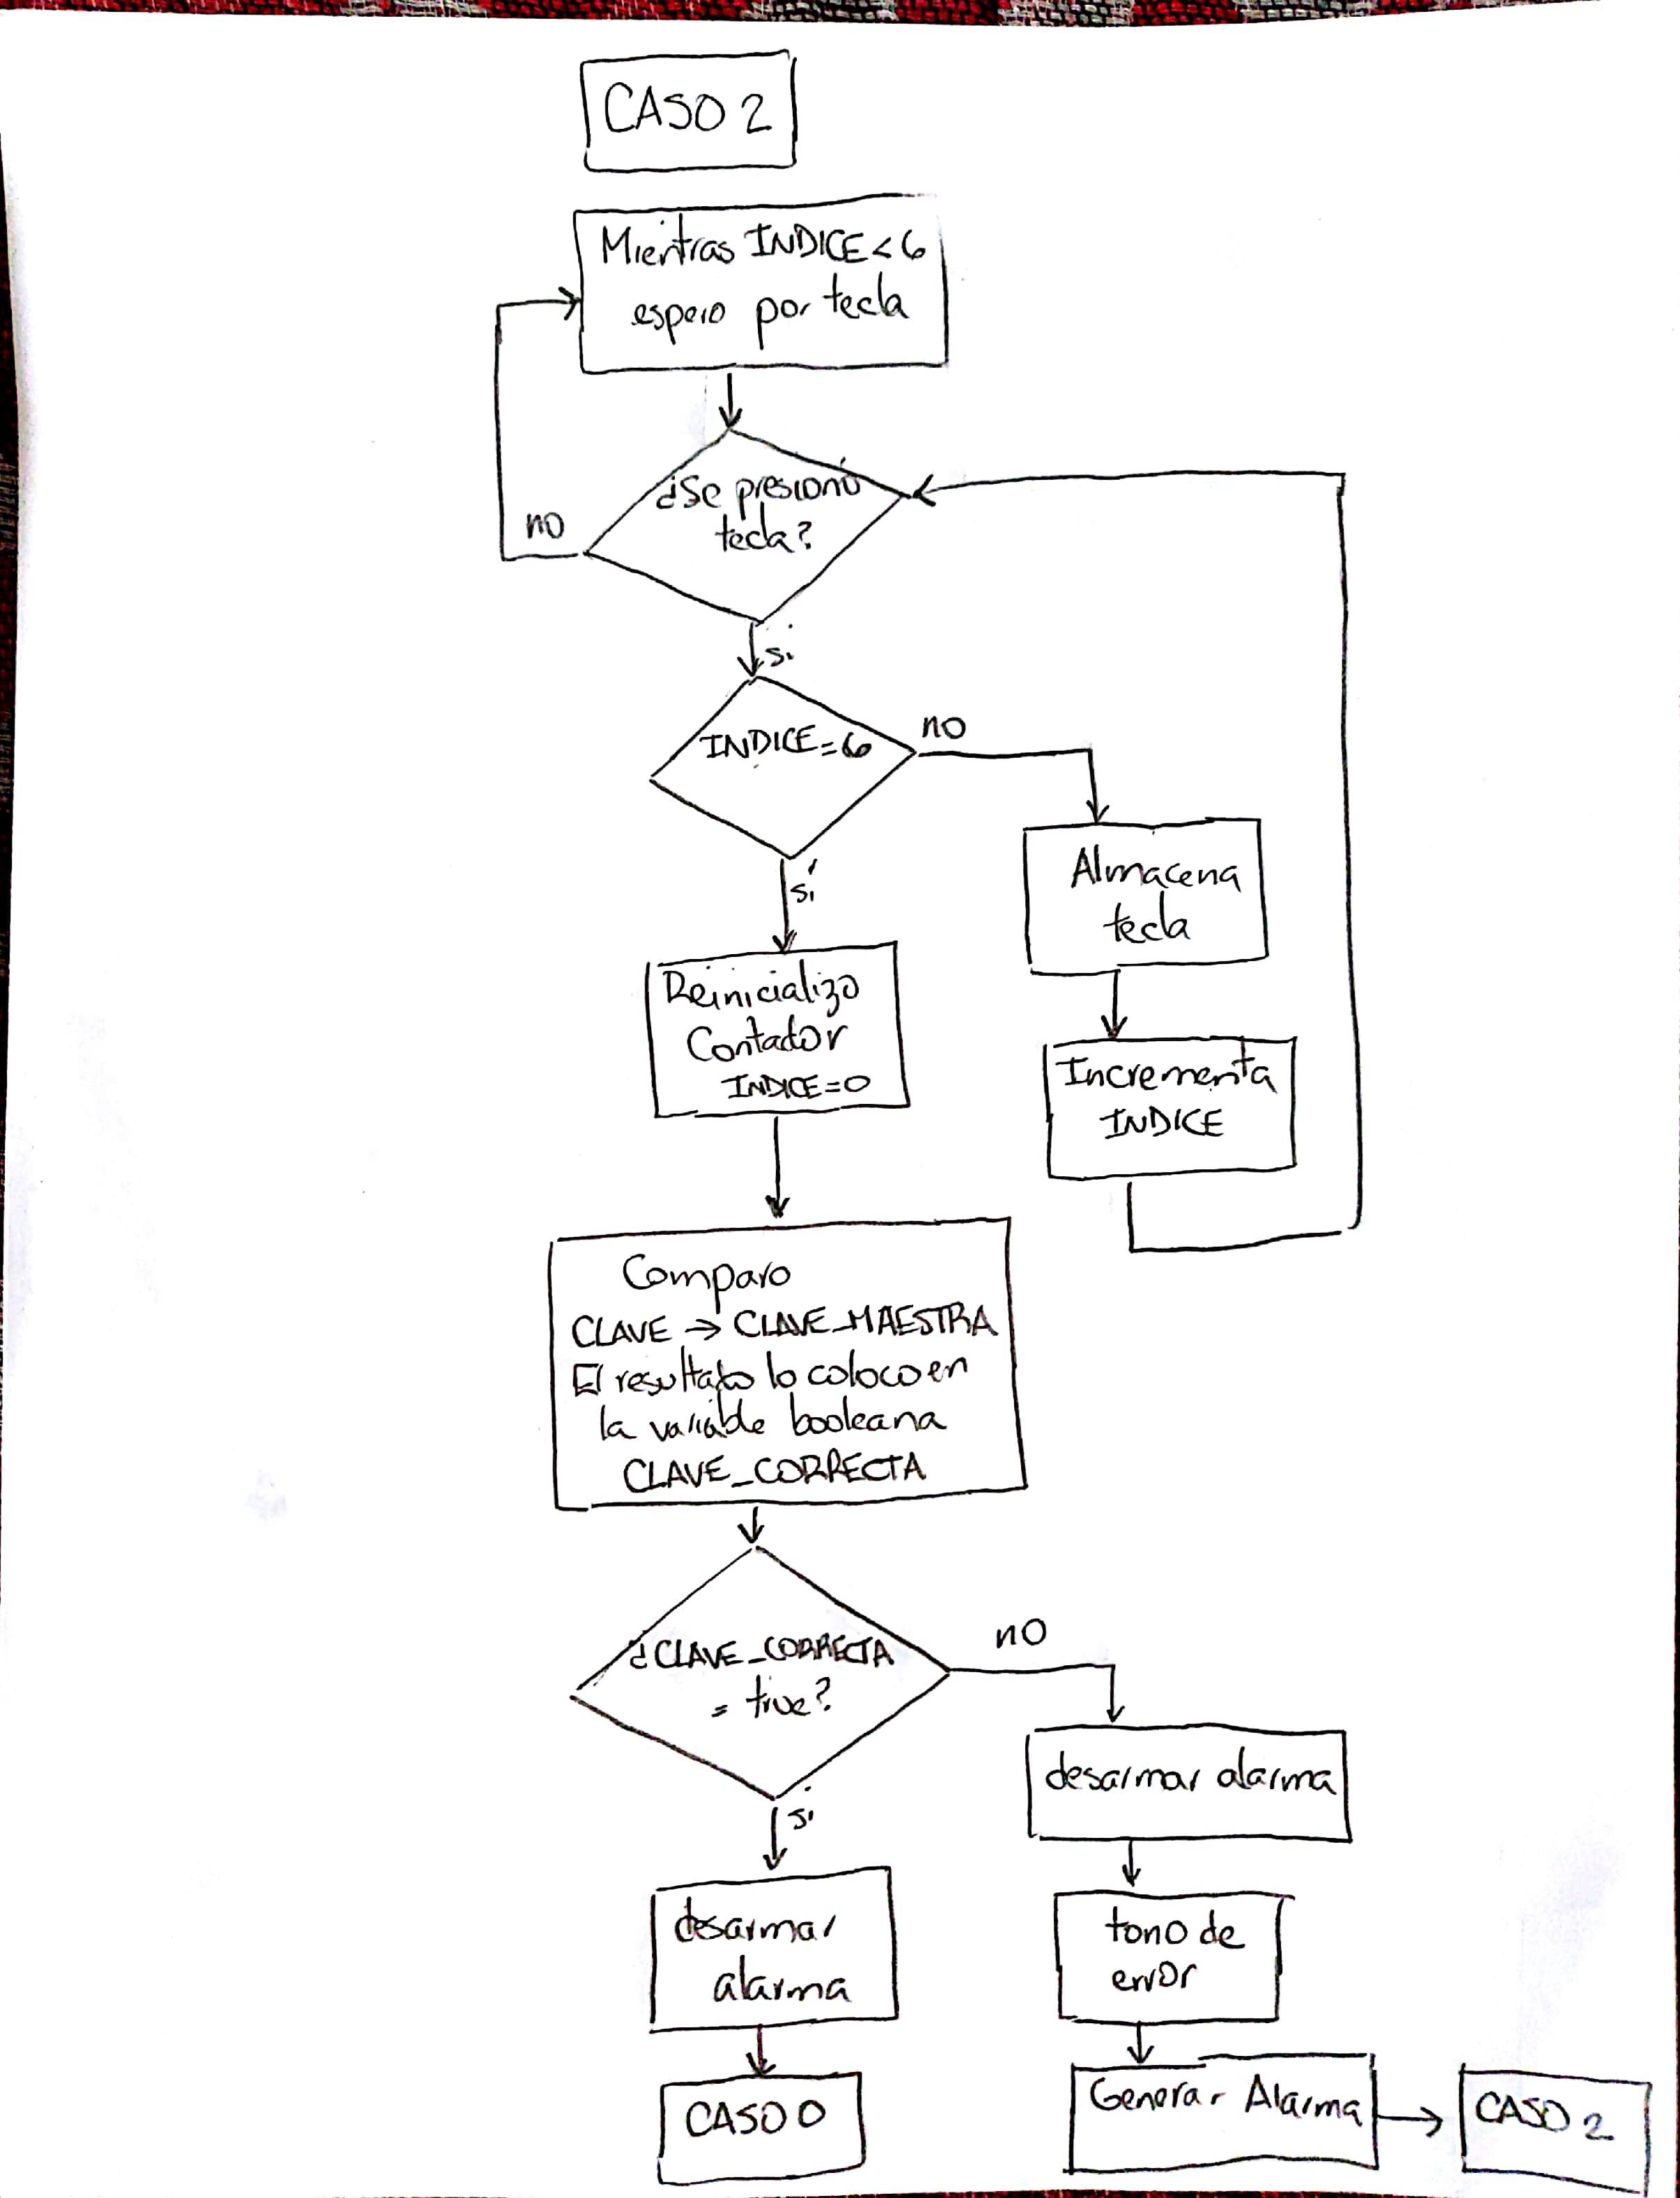 CASO 2
Mientras INDICE<6
espero por tecla
¿Se presionó
tecla?
no
si
INDICE=6
no
sí
Almacena
tecla
Reinicializo
Contador
INDICE=0
Incrementa
INDICE
Comparo
CLAVE → CLAVE_MAESTRA
El resultado lo coloco en
la variable booleana
CLAVE_CORRECTA
¿CLAVE_CORRECTA
= true?
no
si
desarmar alarma
tono de
error
Generar Alarma
CASO 2
desarmar
alarma
CASO 0